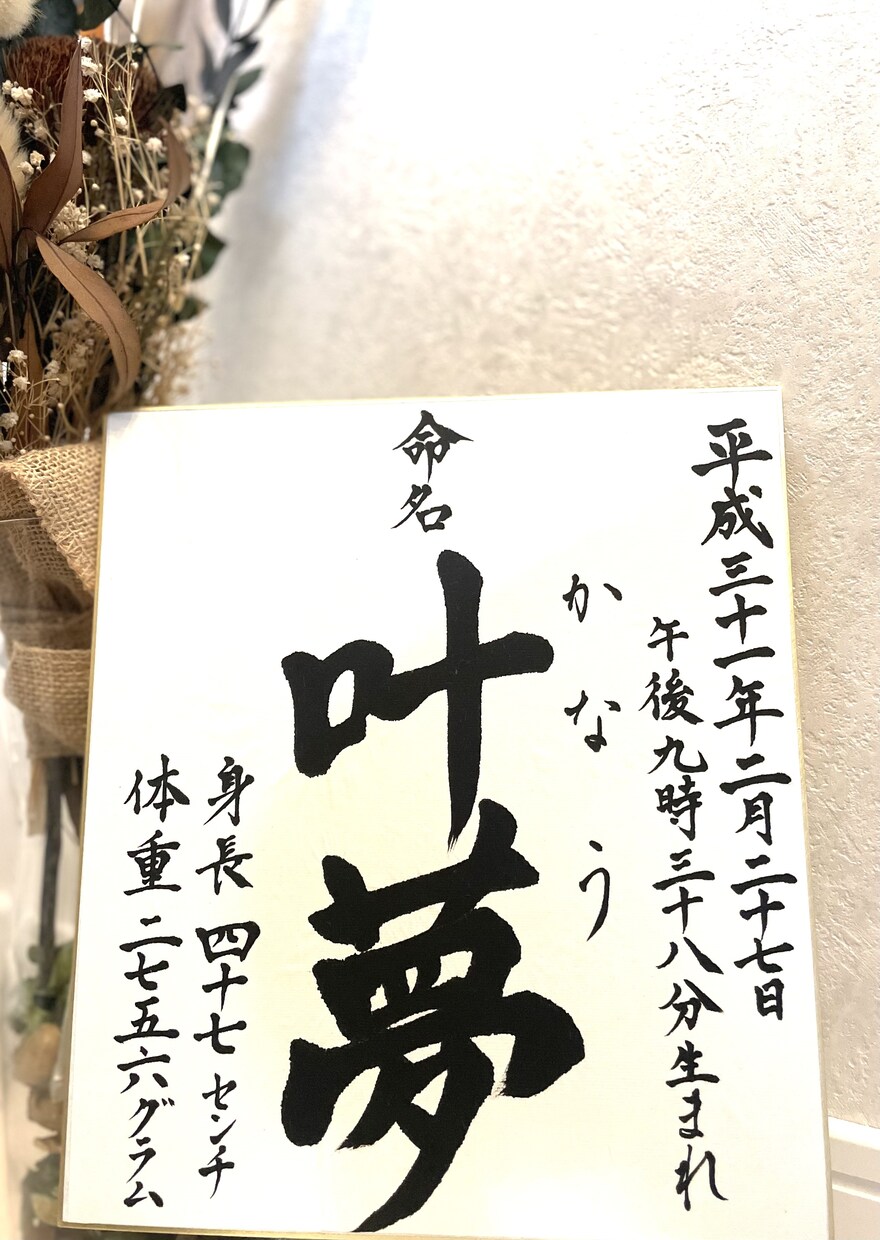 平成三十一年二月二十七日
午後九時三十八分生まれ
かなう
命名
叶夢
身長四十七センチ
体重二七五六グラム